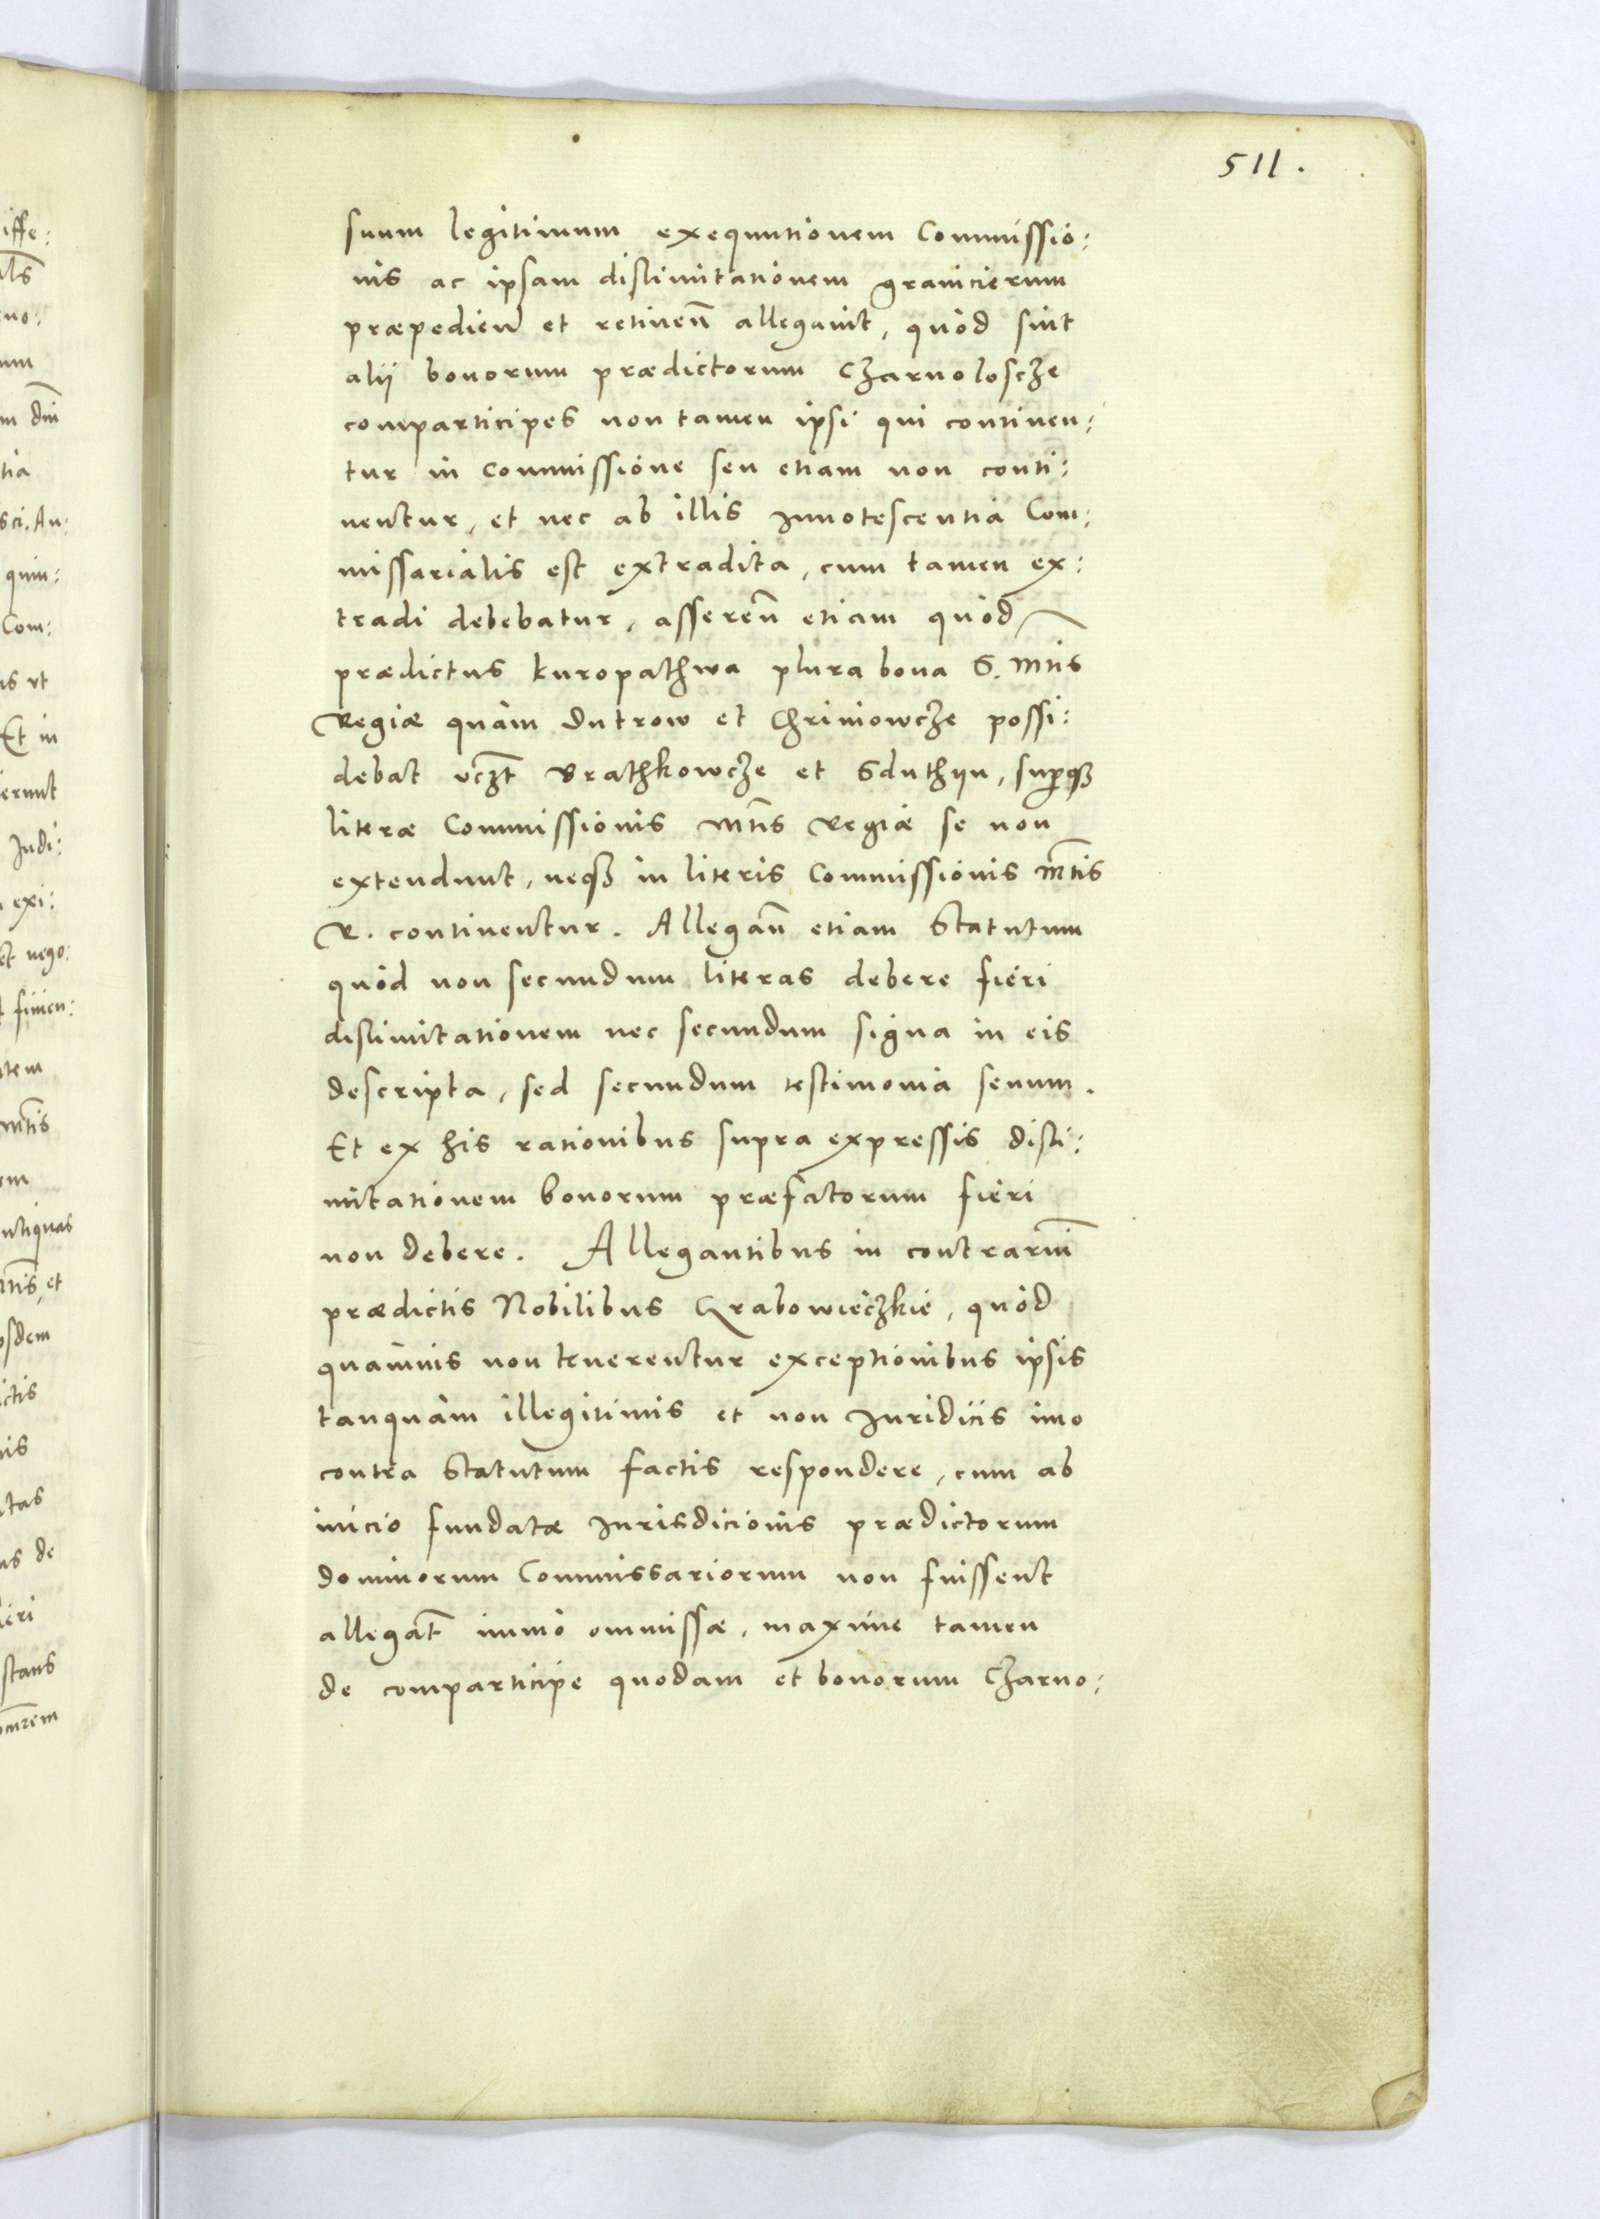 511.
suum legitimum exequutionem Commissio:
nis ac ipsam dislimitationem granicierum
præpedieñ et retineñ allegauit, quòd sint
alii bonorum prædictorum Czarnoloscze
comparticipes non tamen ipsi qui continen:
tur in Commissione seu etiam non conti:
nentur, et nec ab illis Innotescentia Com:
missarialis est extradita, cum tamen ex:
tradi debebatur,assereñ etiam quòd
prædictus kuropathwa plura bona S. Mtis
Regiæ quàm Dutrow et Chriniowcze possi:
debat vczt Brathkowcze et Sduthyn, superqz
literæ Commissionis Mtis Regiæ se non
extendunt, neqz in literis Commissionis Mtis
R. continentur. Allegañ etiam Statutum
quòd non secundum literas debere fieri
dislimitationem nec secundum signa in eis
descripta, sed secundum testimonia senum.
Et ex his rationibus supra expressis disli:
mitationem bonorum præfatorum fieri
non debere. Allegantibus in contrariũ
prædictis Nobilibus Grabowieczkie, quòd
quamuis non tenerentur exceptionibus ipsis
tanquàm illegitimis et non Iuridicis imo
contra Statutum factis respondere, cum ab
inicio fundatæ Iurisdicionis prædictorum
dominorum Commissariorum non fuissent
allegat̃ immò ommissæ, maxime tamen
de comparticipe quodam et bonorum Czarno:
iffe:
no:
um
m dñi
tia
sci. An:
quin:
Com:
is vt
Et in
ierunt
Judi:
exi:
et nego:
finien:
tem
mtis
om
ntiquas
mtis, et
osdem
ictis
nis
tas
us de
leri
stans